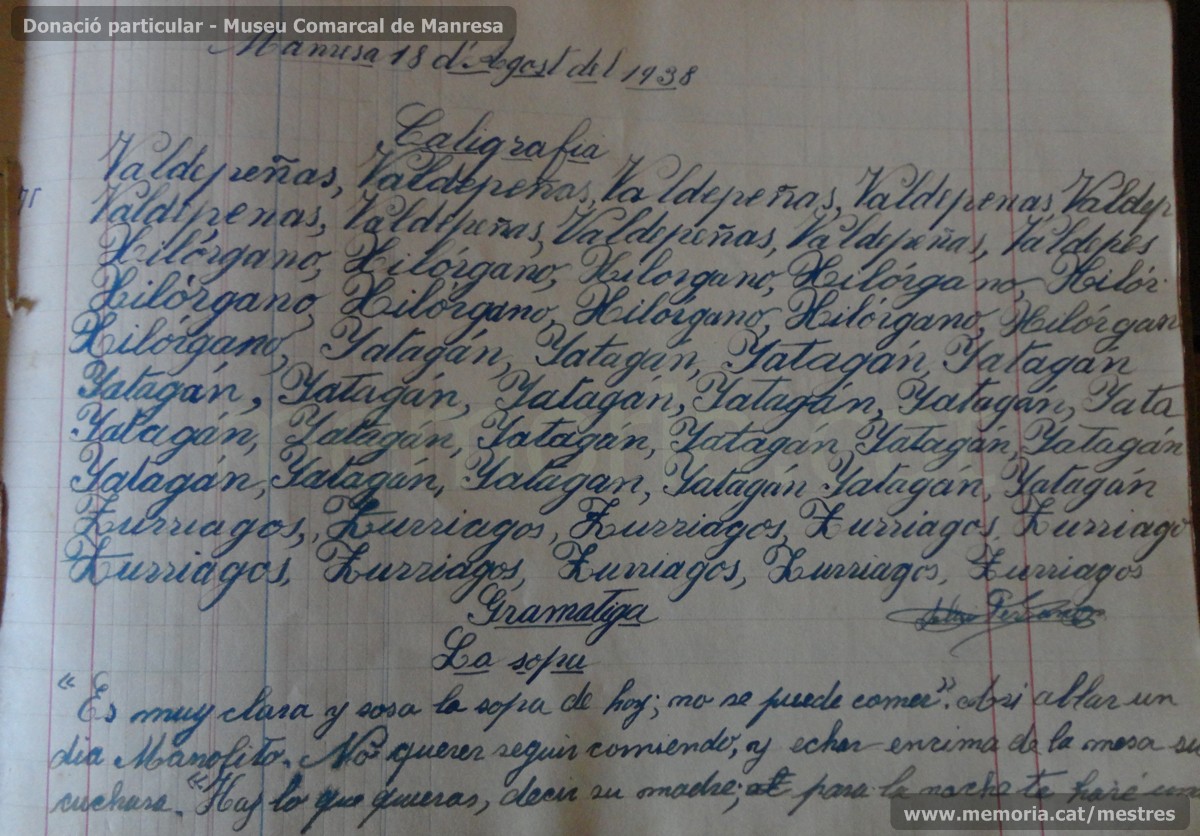 Donació particular - Museu Comarcal de Manresa
Manresa 18 d'Agost del 1938
Caligrafia
Valdepeñas, Valdepeñas, Valdepeñas, Valdepenas, Valdep
Valdepenas, Valdepeñas, Valdepeñas, Valdepeñas, Valdepes
Hilórgano, Hilórgano, Hilorgano, Hilórgano, Hilór
Hilórgano, Hilórgano, Hilórgano, Hilórgano, Hilórgan
Hilórgano, Yatagán, Yatagán, Yatagán, Yatagán
Yatagán, Yatagán, Yatagán, Yatagán, Yatagán, Yata
Yatagán, Yatagán, Yatagán, Yatagán, Yatagán, Yatagán
Yatagán, Yatagán, Yatagan, Yatagán Yatagán, Yatagán
Zurriagos, Zurriagos, Zurriagos, Zurriagos, Zurriago
Zurriagos, Zurriagos, Zurriagos, Zurriagos, Zurriagos
Gramatiga
La sopa
"Es muy clara y sosa la sopa de hoy; no se puede comer". Asi ablar un
dia Manolito. No querer seguir comiendo, y echar encima de la mesa su
cuchara. "Haz lo que quieras, decir su madre; para la noche te haré una
www.memoria.cat/mestres